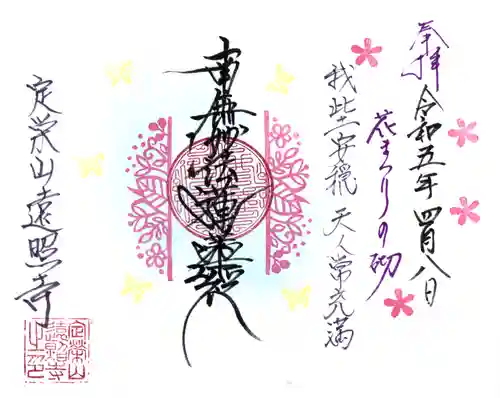 奉拝
令和五年 四月八日
花まつりの砌
我此土安穏 天人常充満
南無妙法蓮華経
定栄山遠照寺
定栄山
遠照寺